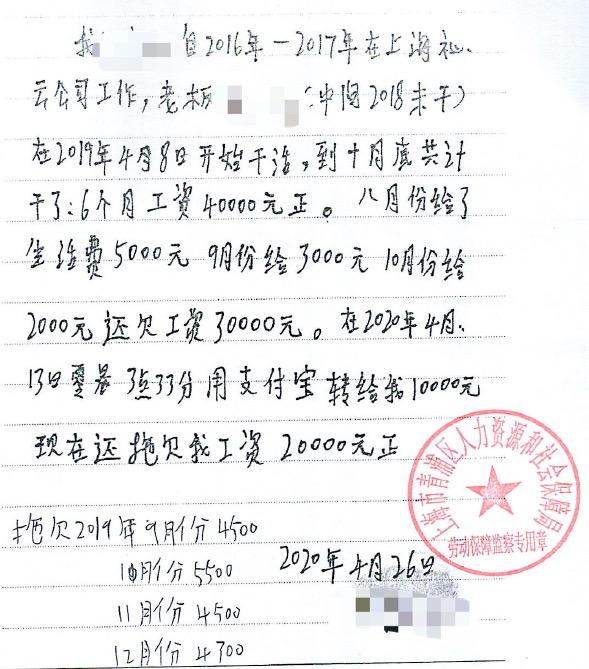 我 自2016年-2017年在上海礼
云公司工作，老板 （中间2018未干）
在2019年4月8日开始干活，到十月底共计
干了：6个月工资40000元正。八月份给了
生活费5000元 9月份给3000元 10月份给
2000元还欠工资30000元。在2020年4月
13日零晨3点33分用支付宝转给我10000元
现在还拖欠我工资20000元正
上海市青浦区人力资源和社会保障局
劳动保障监察专用章
拖欠2019年9月份4500
10月份5500
2020年4月26日
11月份4500
12月份4300